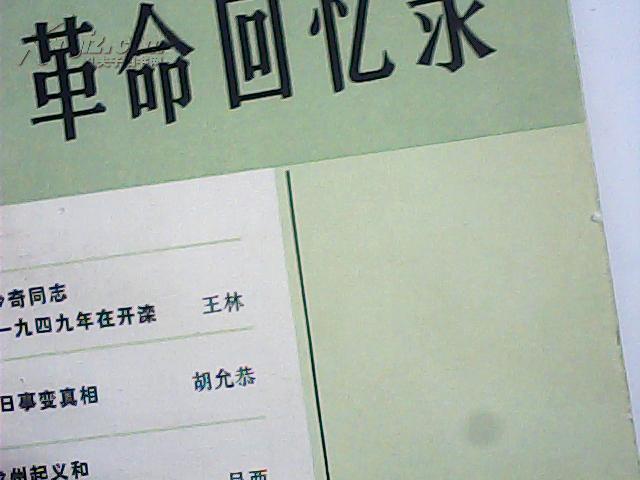 革命回忆录
奇同志
一九四九年在开滦 王林
日事变真相 胡允恭
州起义和